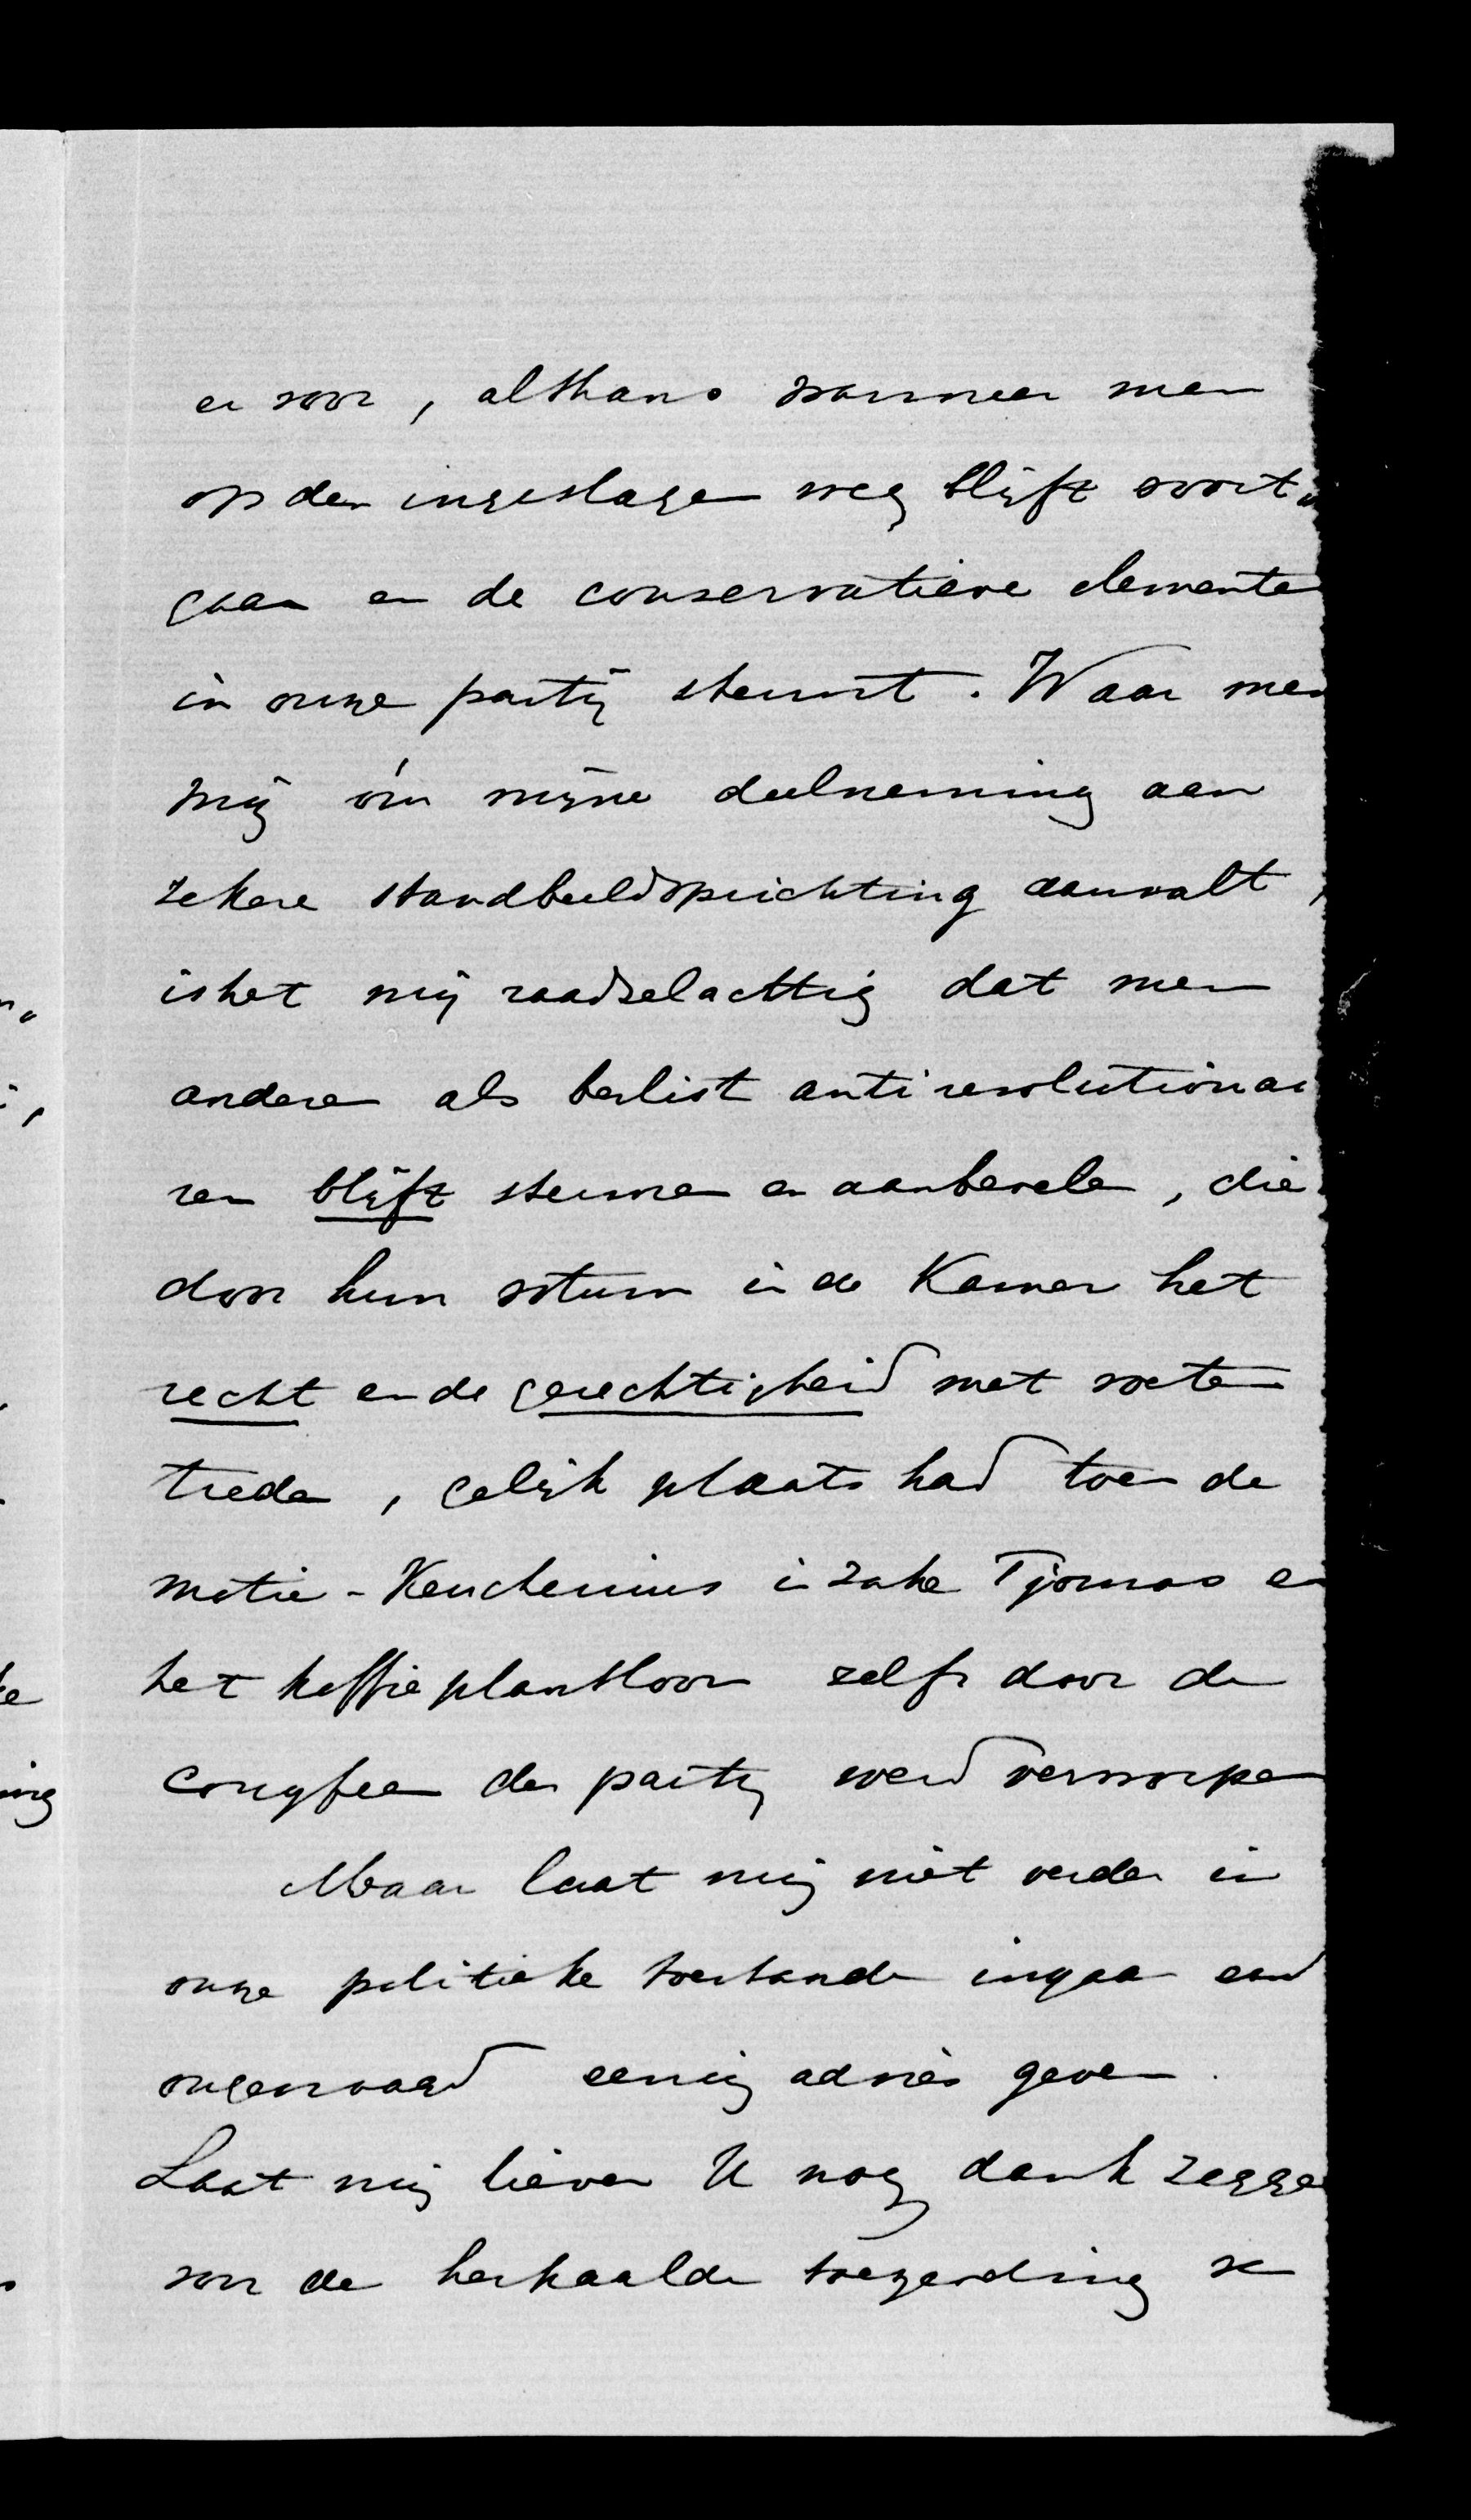 er voor, althans wanneer men
op den ingeslagen weg blijft voort-
gaan en de conservatieve elementen
in onze partij steunt. Waar men
mij óm mijne deelneming aan
zekere standbeeldoprichting aanvalt,
is het mij raadselachtig dat men
anderen als beslist antirevolutionai
ren blijft steunen en aanbevelen, die
door hun votum in de Kamer het
recht en de gerechtigheid met voeten
treden, gelijk plaats had toen de
motie-Keuchenius in zake Tjomas en
het koffieplantloon zelfs door de
coryfeen der partij werd verworpen
Maar laat mij niet verder in
onze politieke toestanden ingaan en
ongevraagd eenig advies geven.
Laat mij liever U nog dank zeggen
voor de herhaalde toezending